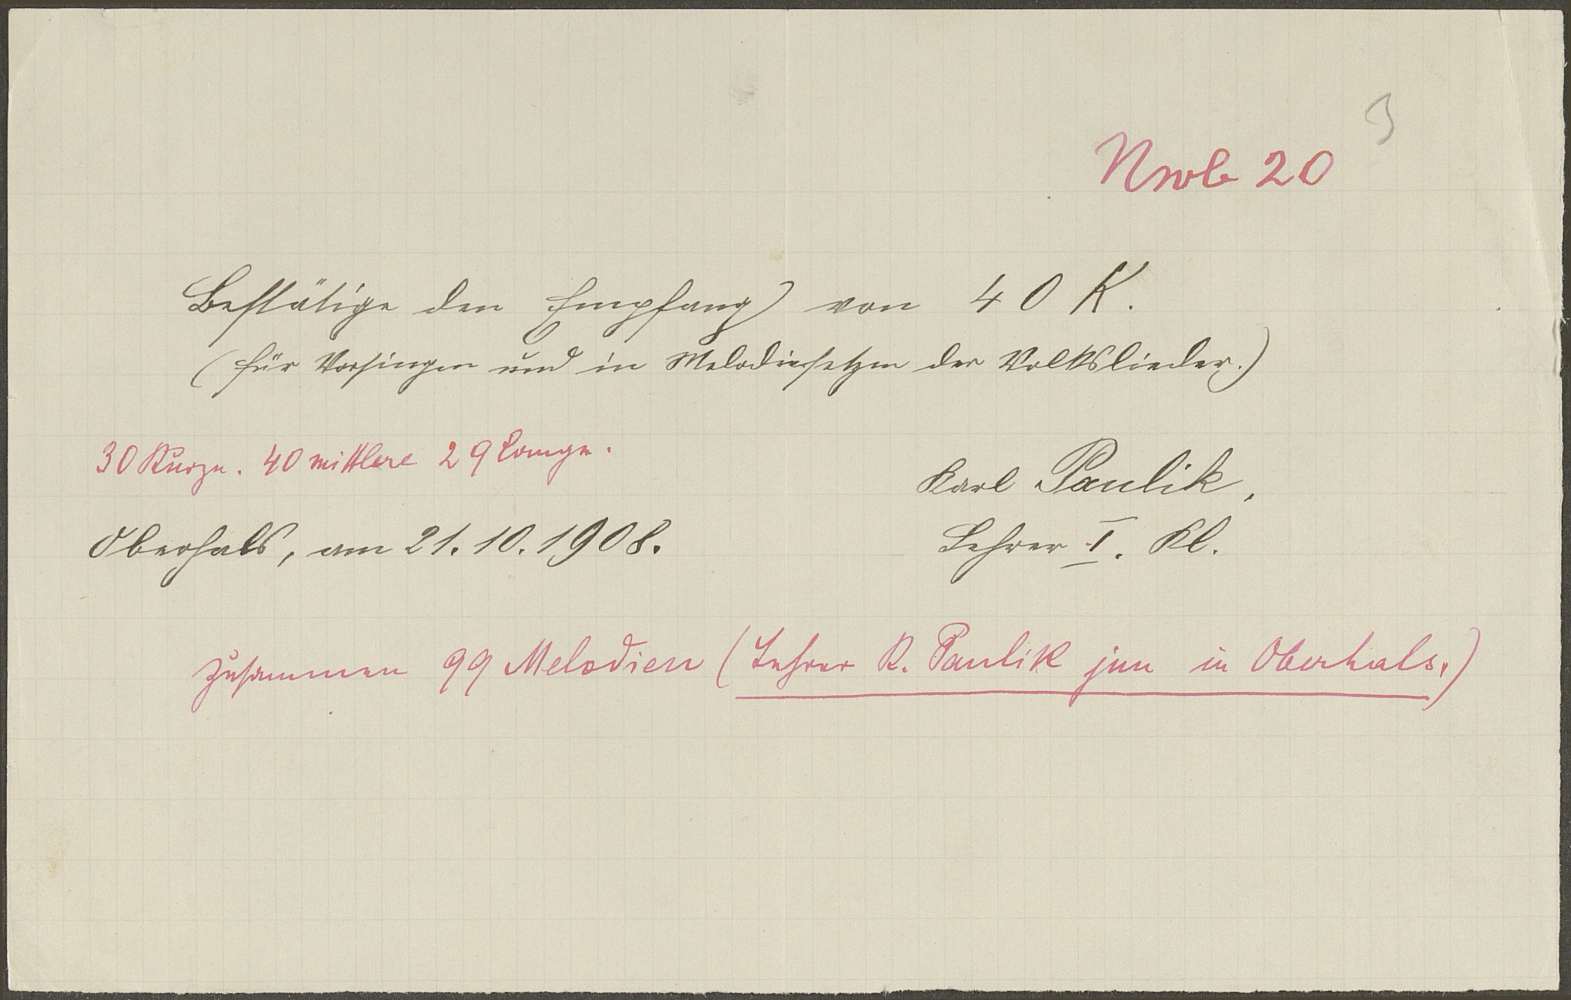 3
20
Bestätige den Empfang von 40 K.
(für Vorsingen und in Melodiesetzen der Volkslieder.)
30 Kurze. 40 mittlere 29 Lange.
Karl Paulik,
Oberhals, am 21.10.1908.
Lehrer I. Kl.
Zusammen 99 Melodien (Lehrer K. Paulik jun in Oberhals.)